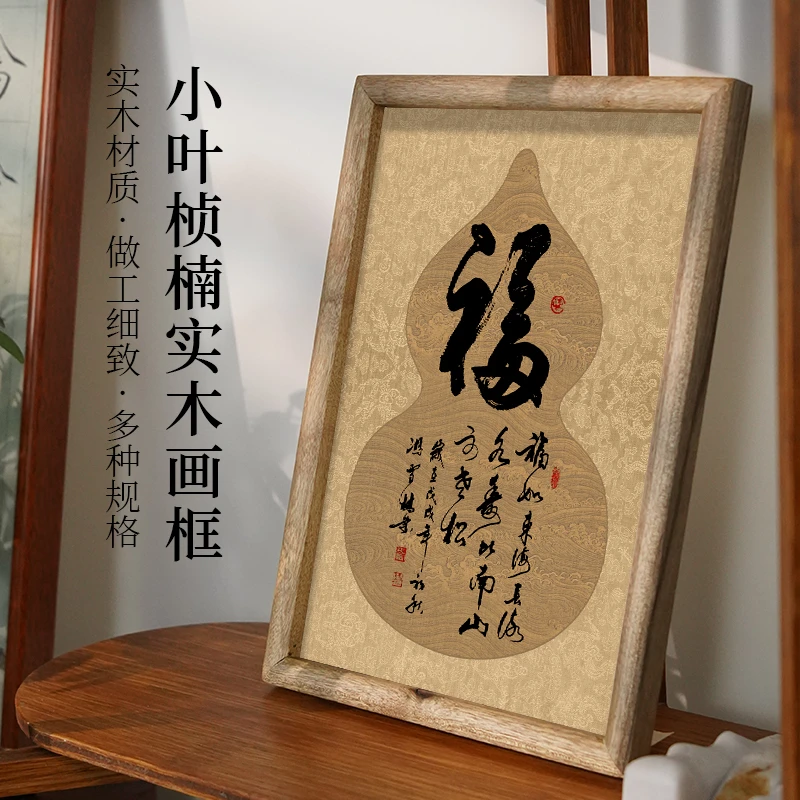 小叶桢楠实木画框
实木材质·做工细致·多种规格
福
福如東海長流
水壽比南山
不老松
歲在戊戌年初秋